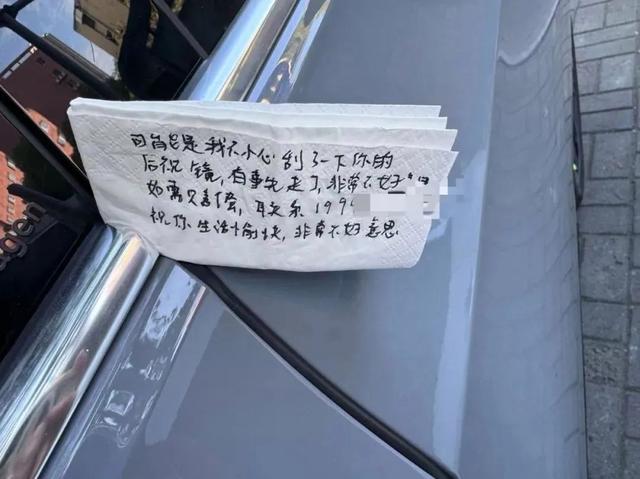 可能是我不小心刮了一下你的
后视镜，有事先走了，非常不好
如需赔偿，联系 199
祝你生活愉快，非常不好意思
gen